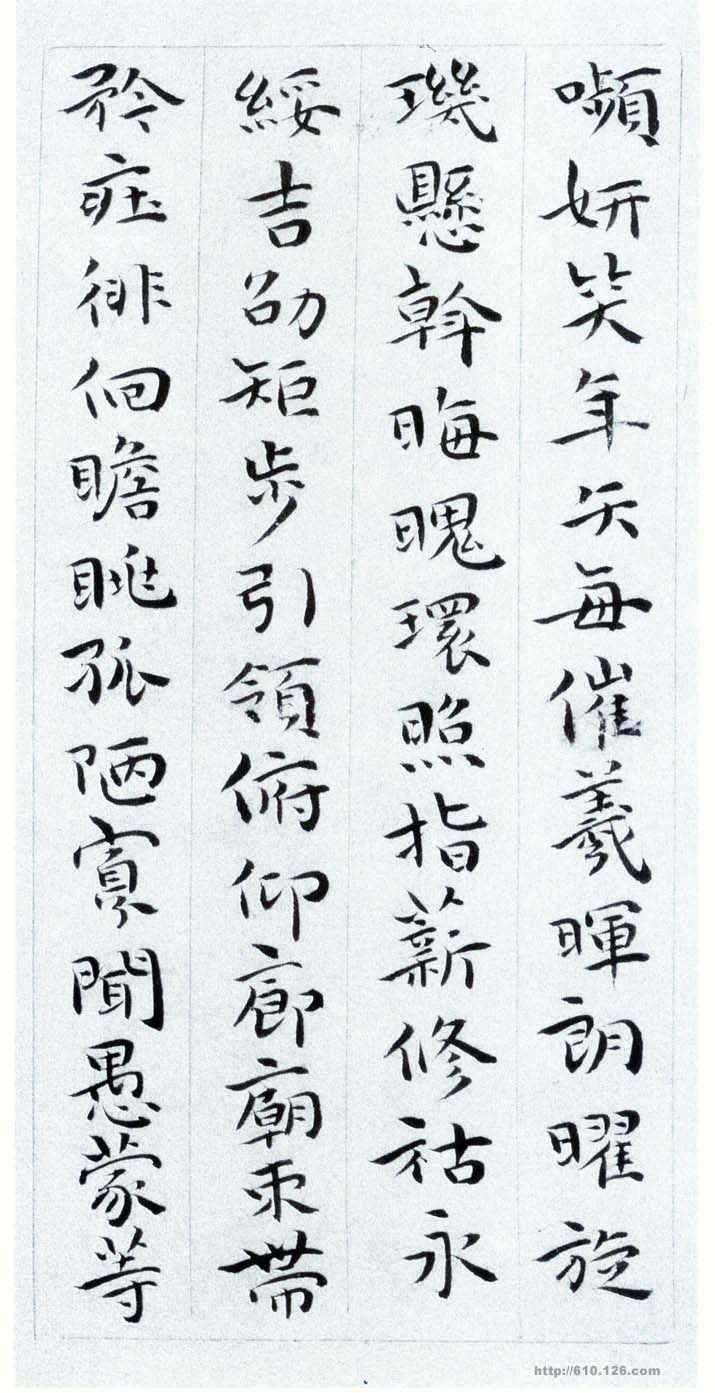 嚬妍笑年矢每催羲暉朗曜旋
璣懸斡晦魄環照指薪修祜永
綏吉劭矩步引領俯仰廊廟束帶
矜莊徘徊瞻眺孤陋寡聞愚蒙等
http://610.126.com